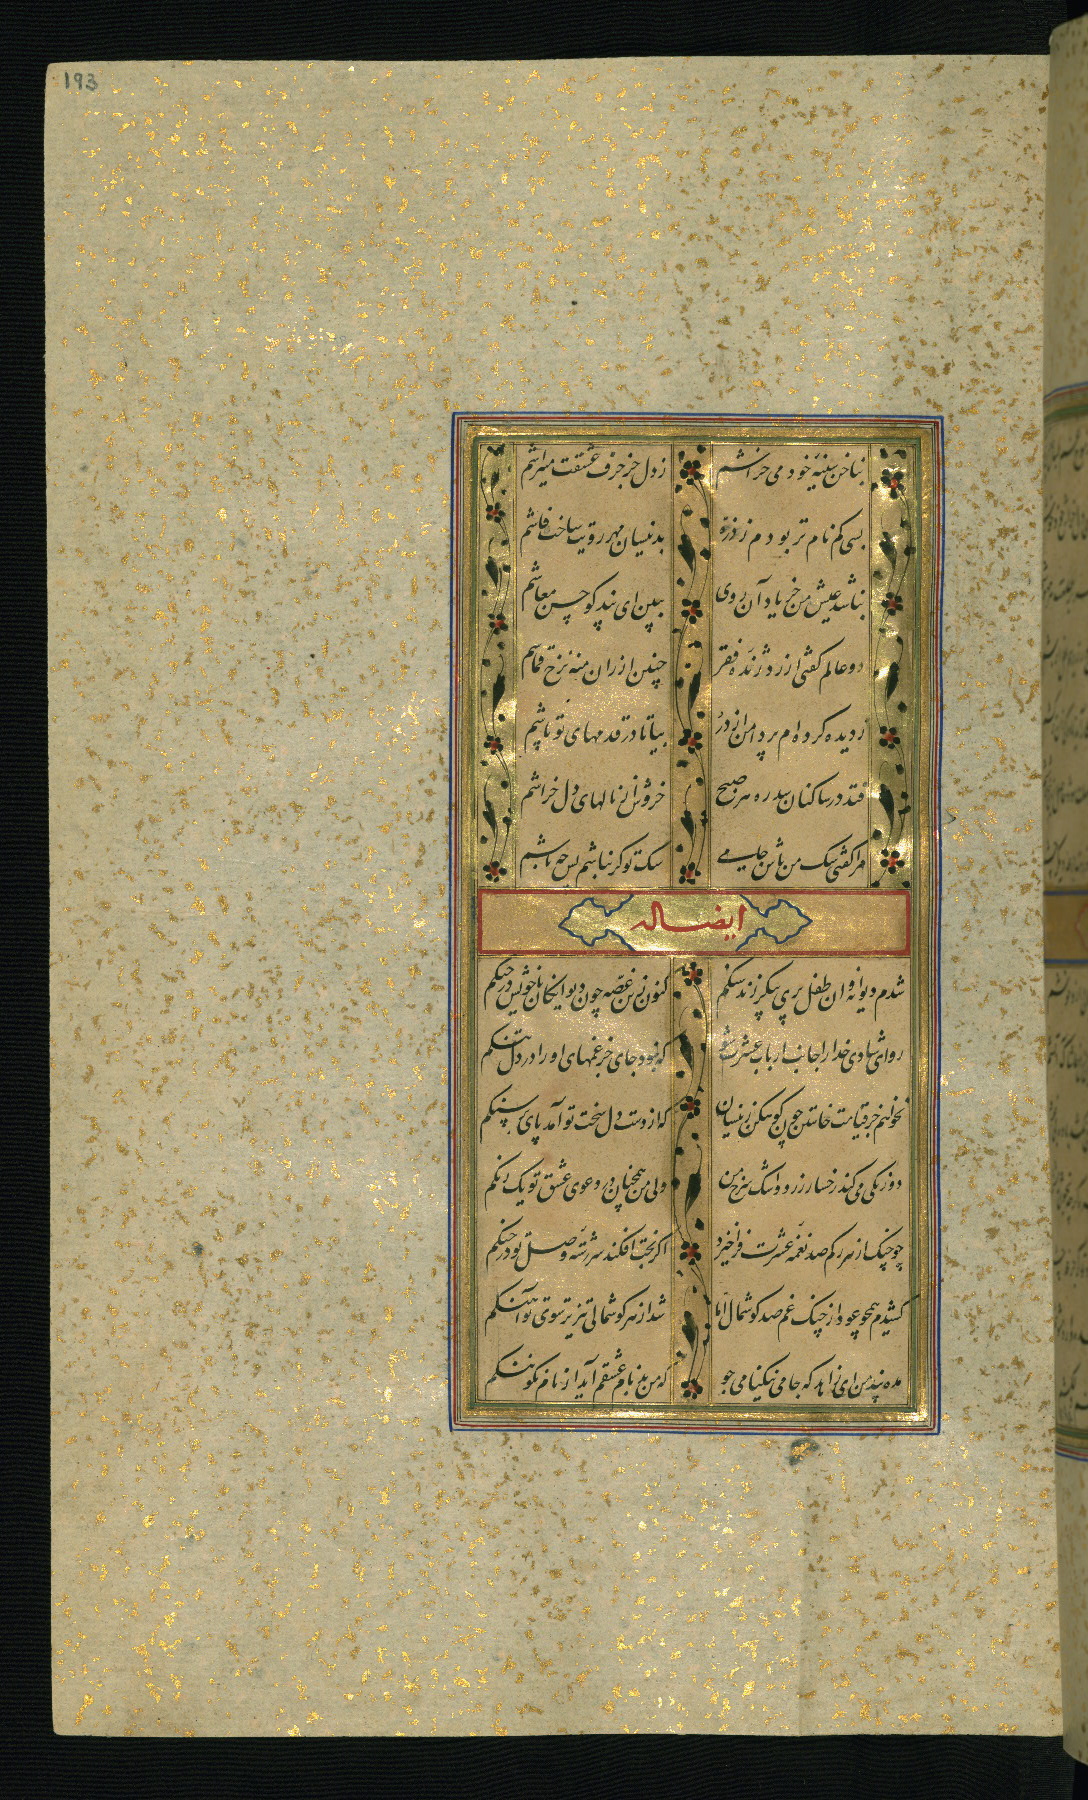 193
بناخن سینهٔ خود می خراشم ز دل جز حرف عشقت میتراشم
بسی کم نام تر بودم ز ذره بدینسان مهر رویت ساخت فاشم
نباشد عیش من جز یاد آن روی ببین ای پندگو حسن معاشم
دو عالم گفتی ارزد ژندهٔ فقر چنین ارزان منه نرخ قماشم
ز دیده کرده ام پر دامن از در بیا تا در قدمهای تو پاشم
فتد در ساکنان سدره هر صبح خروش از نالهای دل خراشم
مرا گفتی سگ من باش جامی سگت گر نباشم پس چه باشم
ایضا له
شدم دیوانه و آن طفل پری پیکر نزد سنگم کنون زین غصه چون دیوانگان با خویش در جنگم
رو ای شادی خدا را جانب ارباب عشرت شو که نبود جای جز غمهای او را در دل تنگم
نخواهم جز قیامت خاستن چون کوهکن زینسان که از دست دل سخت تو آمد پای بر سنگم
دو رنگی می کند رخسار زرد و اشک سرخ من ولی من همچنان در دعوی عشق تو یک رنگم
چو چنگ از هر رگم صد نغمهٔ عشرت فرا خیزد اگر بخت افکند سررشتهٔ وصل تو در چنگم
کشیدم همچو عود از چنگ غم صد گوشمال اما شد از هر گوشمالی تیزتر سوی تو آهنگم
مده پندم من ای زاهد که جامی نیکنامی جو که من بدنام عشقم آید از نام نکو ننگم